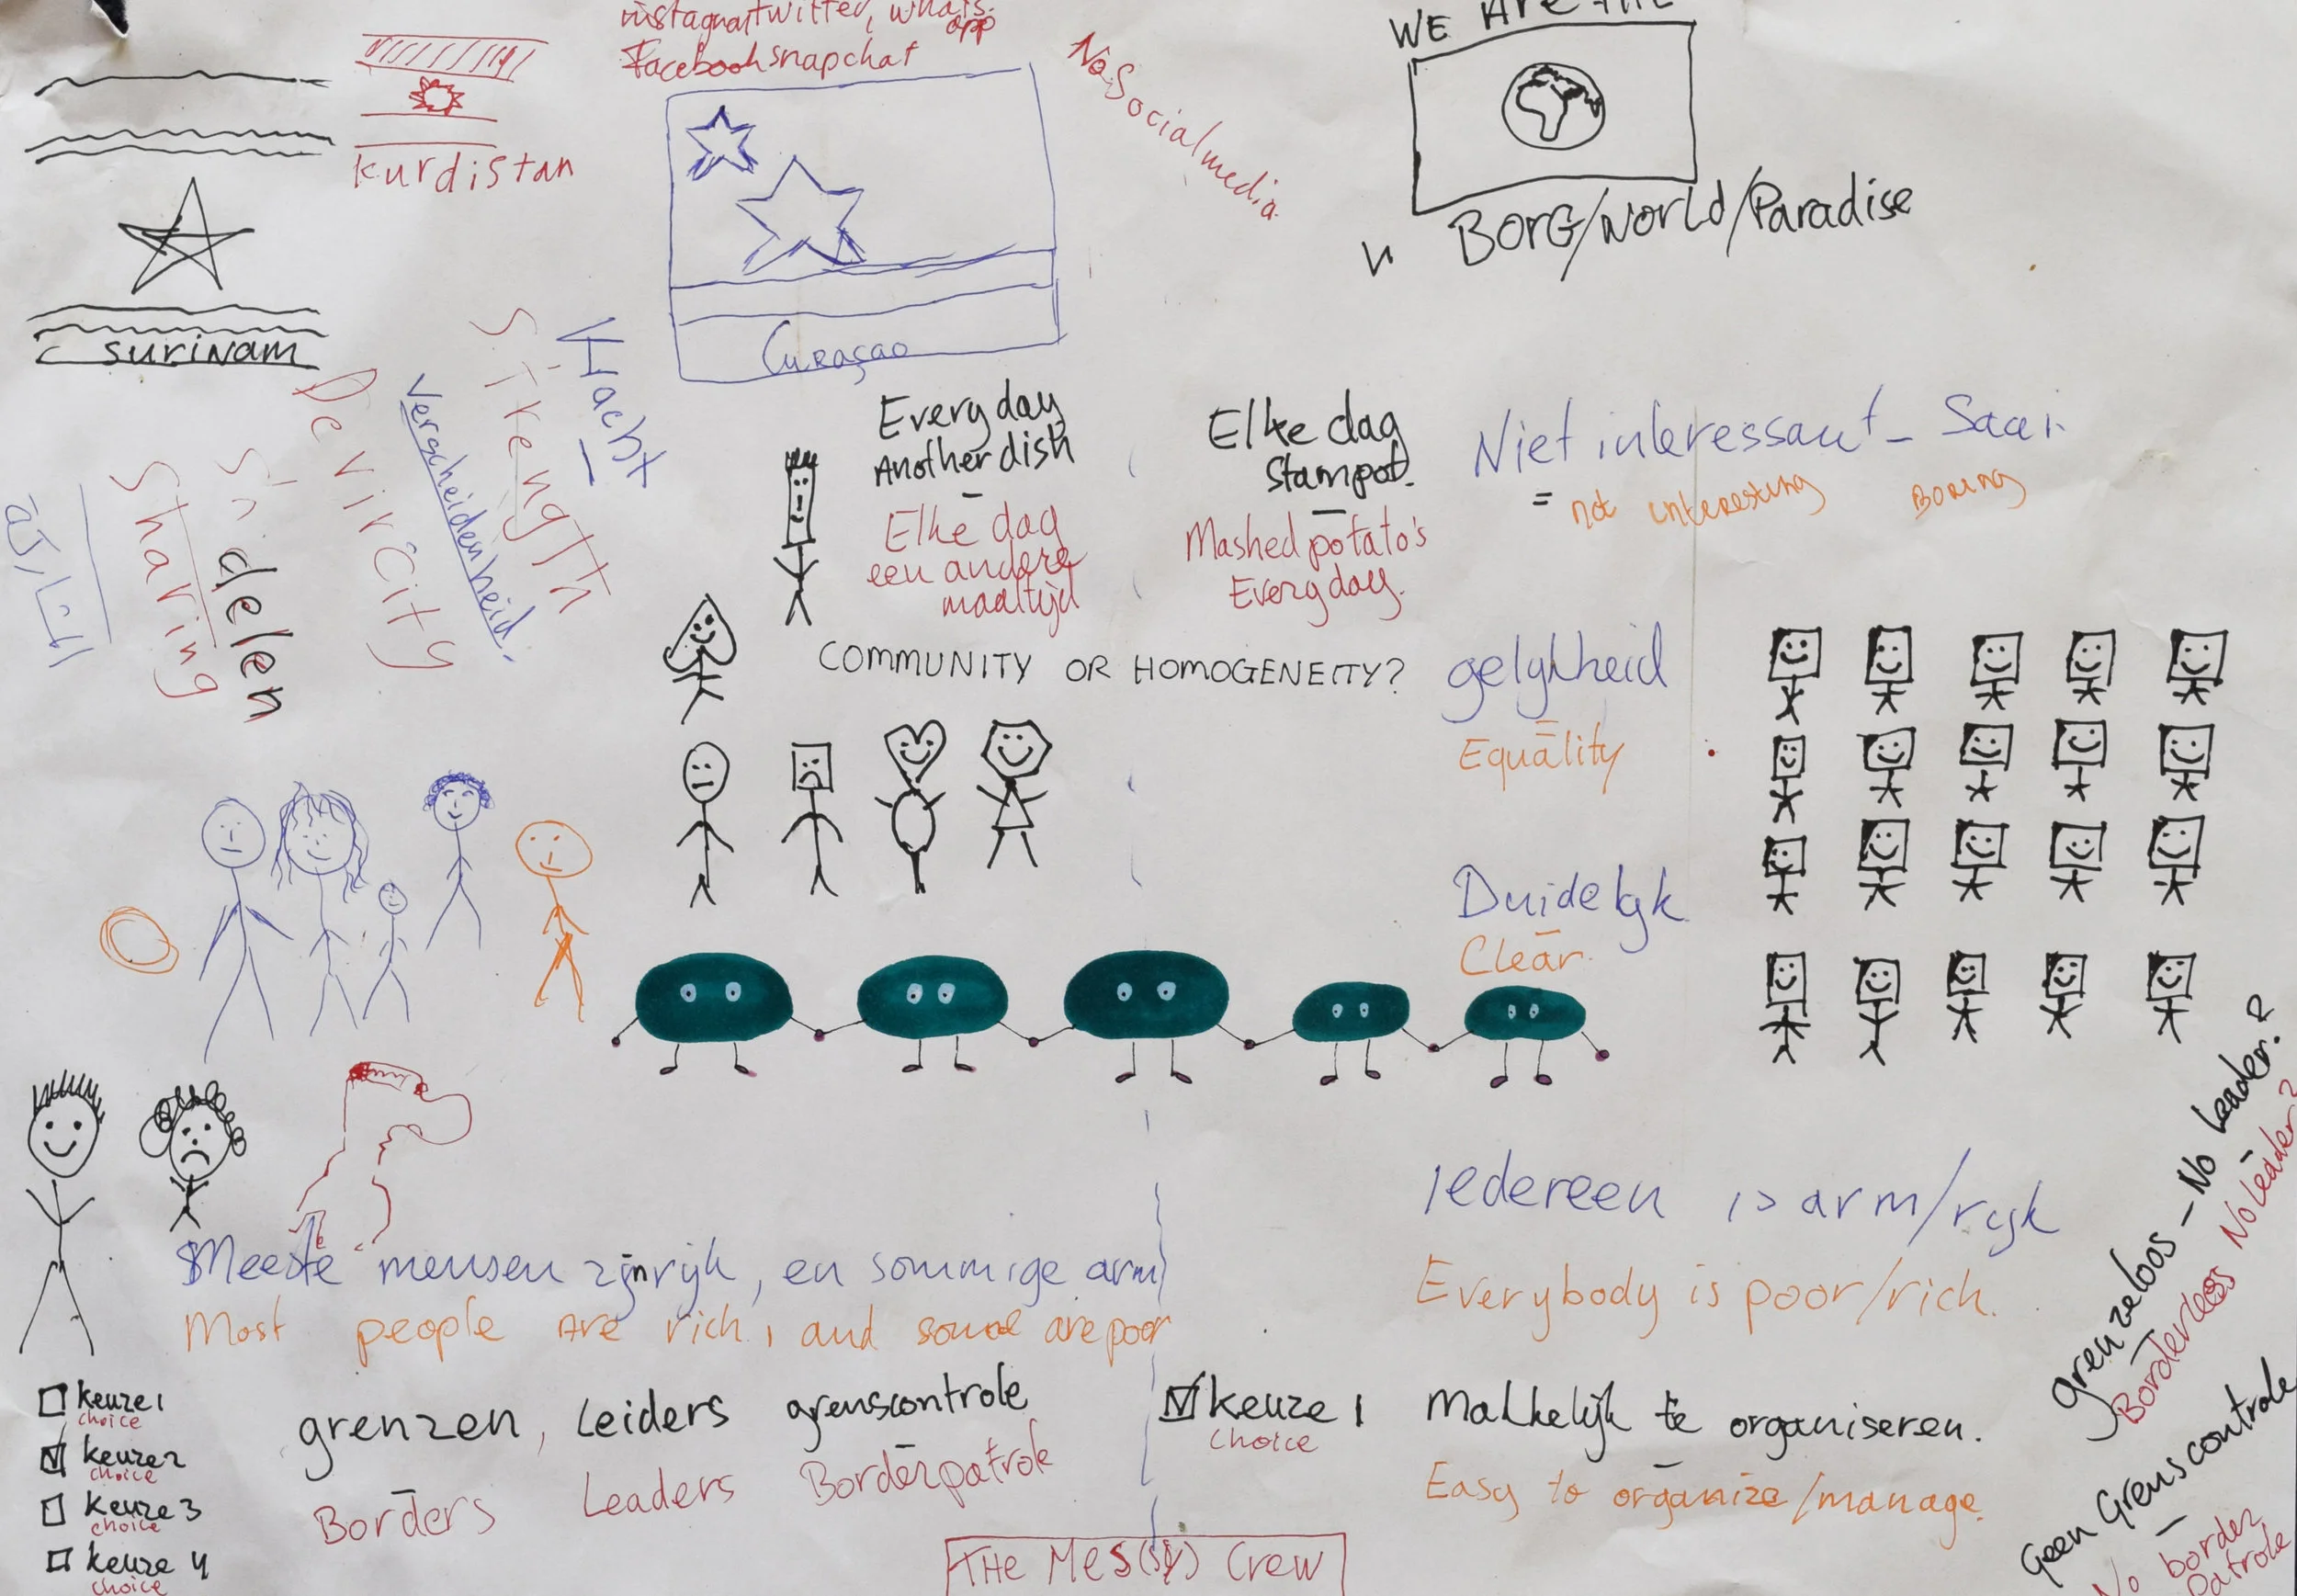 twitter, whats.
app
Facebook snapchat
WE Are
No Social media
kurdistan
BOrG/World/Paradise
Surinam
Curaçao
STrength
Kracht
Devircity
Verscheidenheid.
delen
Sharing
Every day
Another dish
Elke dag
een andere
maaltijd
Elke dag
Stampot.
Mashed potato's
Every day.
Niet interessant - Saai
= not interesting Boring
COMMUNITY OR HOMOGENEITY?
gelykheid
Equality
Duidelyk
Clear
Meeste mensen zijn ryk, en sommige arm
Most people Are rich, and some are poor
Iedereen is arm/ryk
Everybody is poor/rich.
grenzeloos - No Leader?
Borderless No leader?
keuze 1
choice
keuze 2
choice
keuze 3
choice
keuze 4
choice
grenzen, Leiders grenscontrole
Borders Leaders Borderpatrole
keuze 1
choice
Makkelijk te organiseren.
Easy to organize/manage
Geen Grenscontrole
No border
patrole
THE MES(SY) Crew